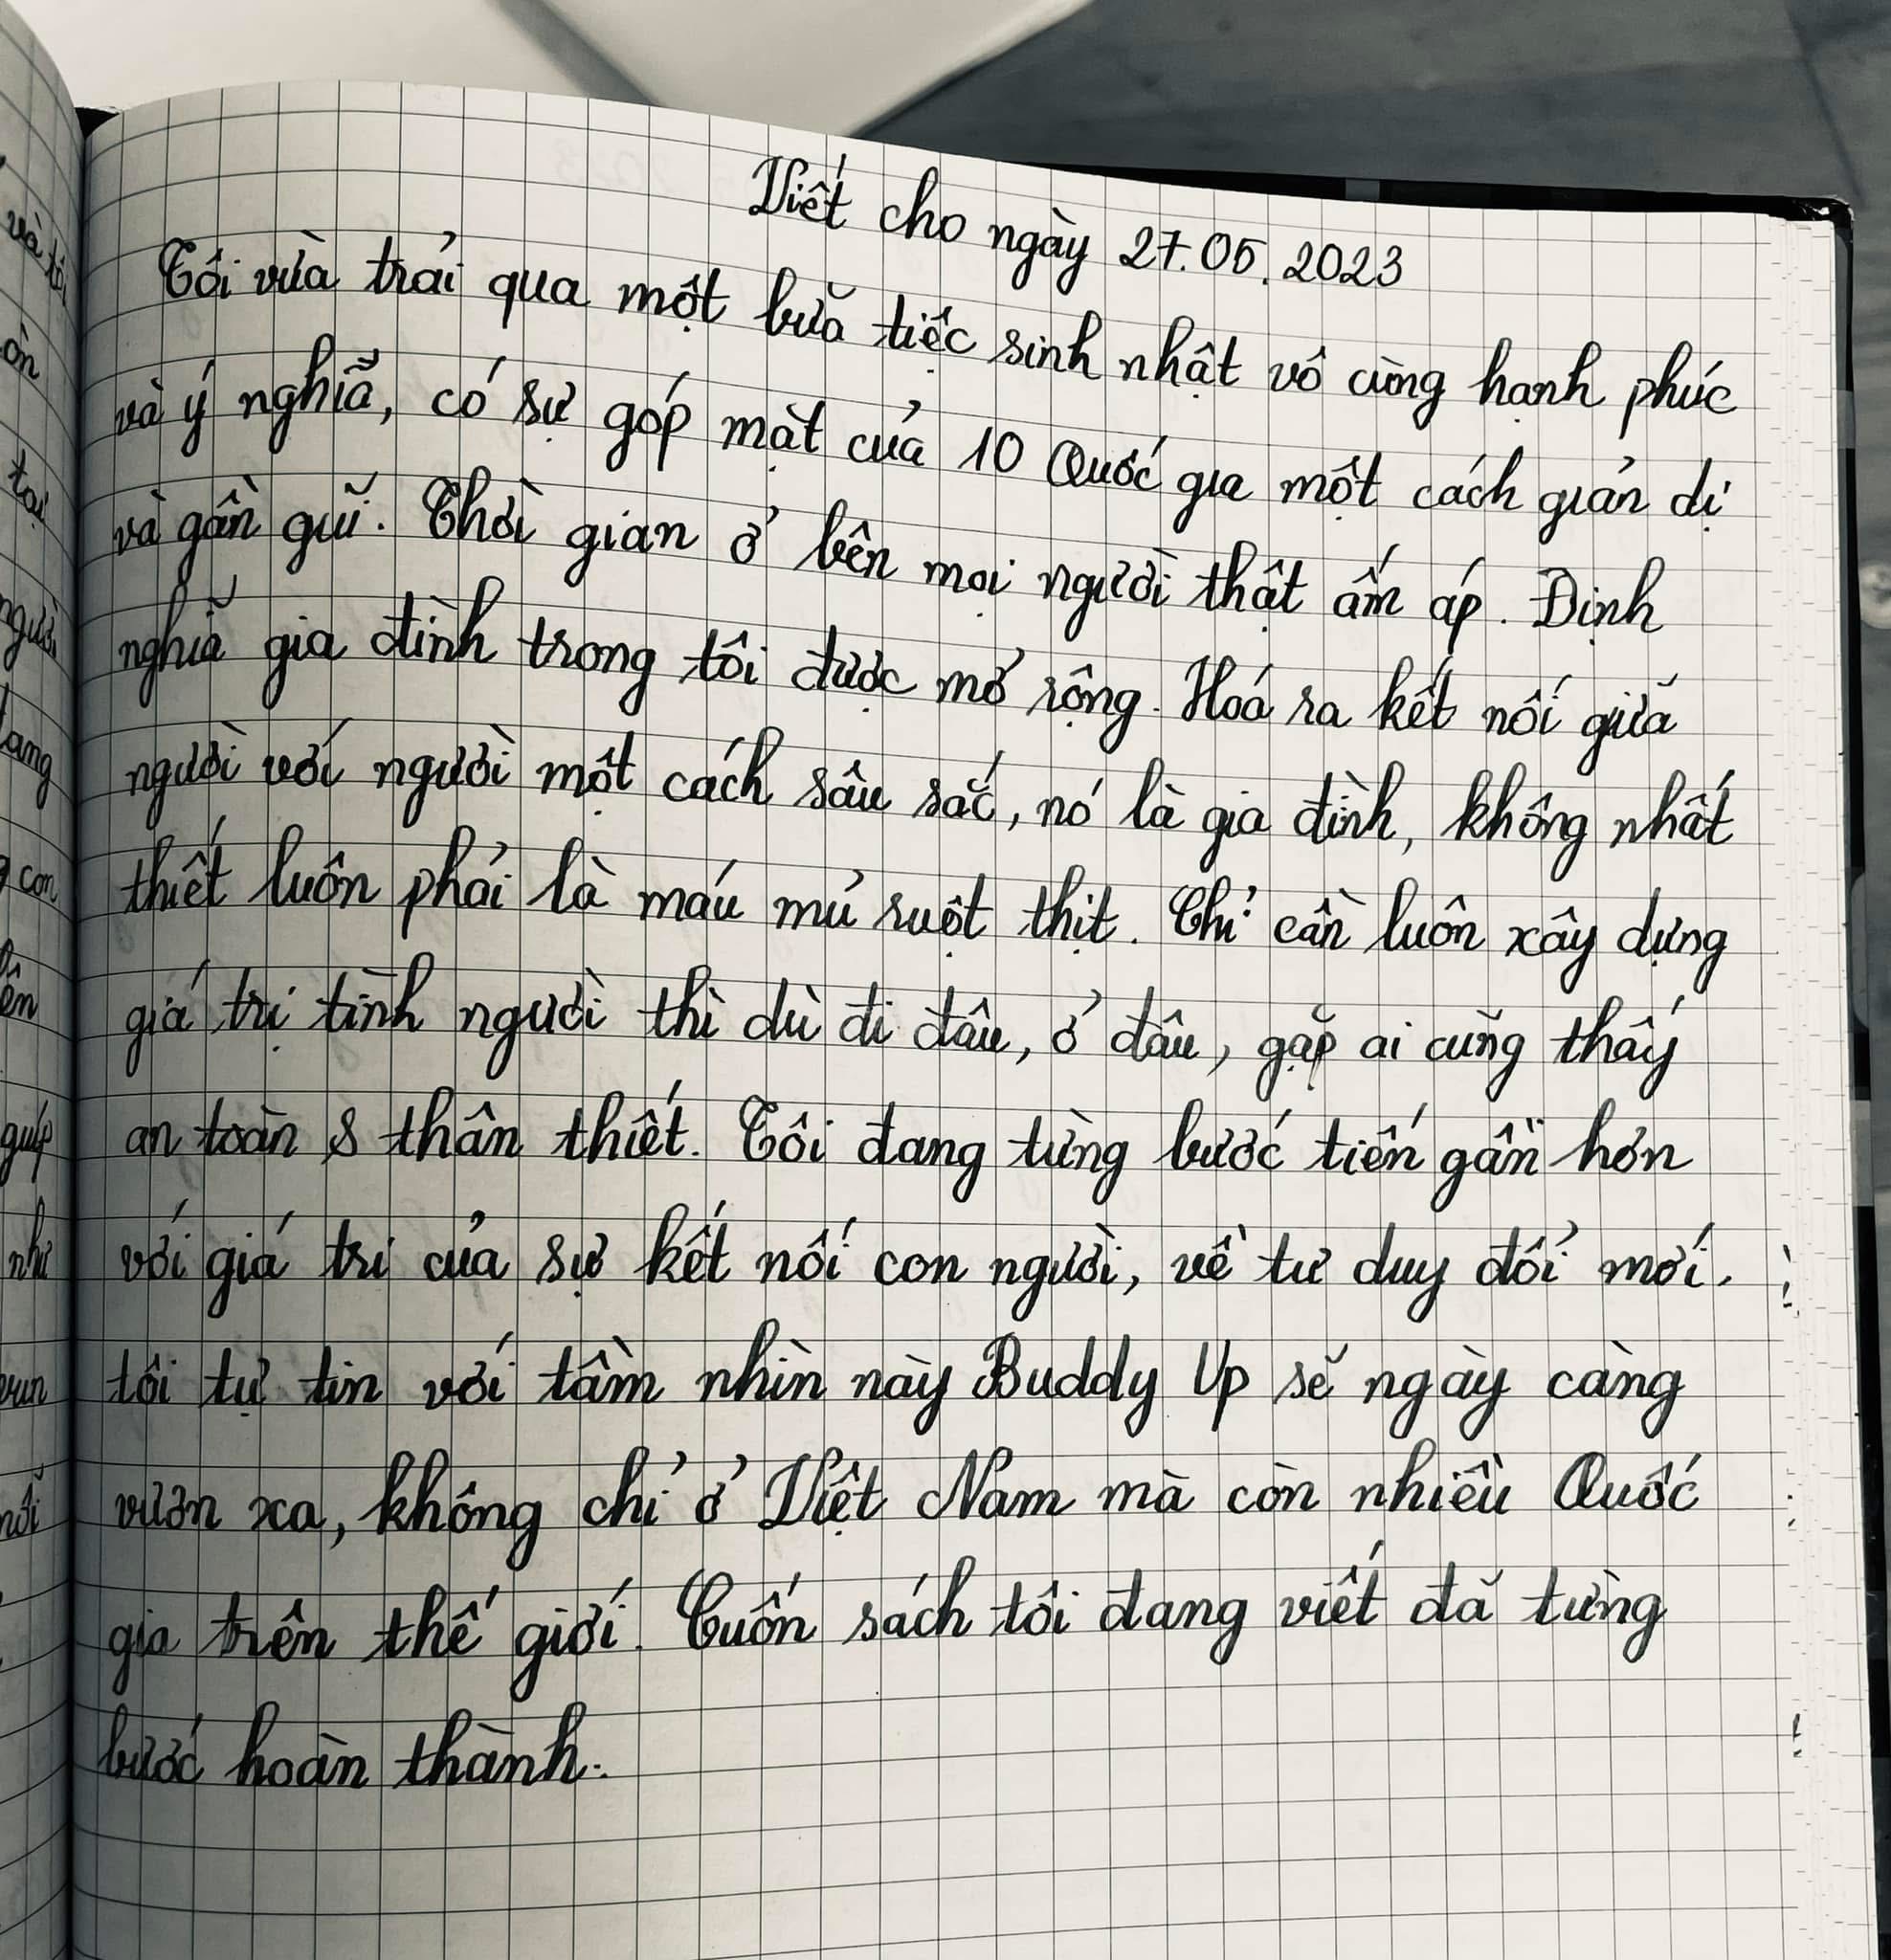 Viết cho ngày 27.05.2023
Tôi vừa trải qua một bữa tiệc sinh nhật vô cùng hạnh phúc
và ý nghĩa, có sự góp mặt của 10 Quốc gia một cách giản dị
và gần gũi. Thời gian ở bên mọi người thật ấm áp. Định
nghĩa gia đình trong tôi được mở rộng. Hoá ra kết nối giữa
người với người một cách sâu sắc, nó là gia đình, không nhất
thiết luôn phải là máu mủ ruột thịt. Chỉ cần luôn xây dựng
giá trị tình người thì dù đi đâu, ở đâu, gặp ai cũng thấy
an toàn & thân thiết. Tôi đang từng bước tiến gần hơn
với giá trị của sự kết nối con người, về tư duy đổi mới.
tôi tự tin với tầm nhìn này Buddy Up sẽ ngày càng
vươn xa, không chỉ ở Việt Nam mà còn nhiều Quốc
gia trên thế giới. Cuốn sách tôi đang viết đã từng
bước hoàn thành.